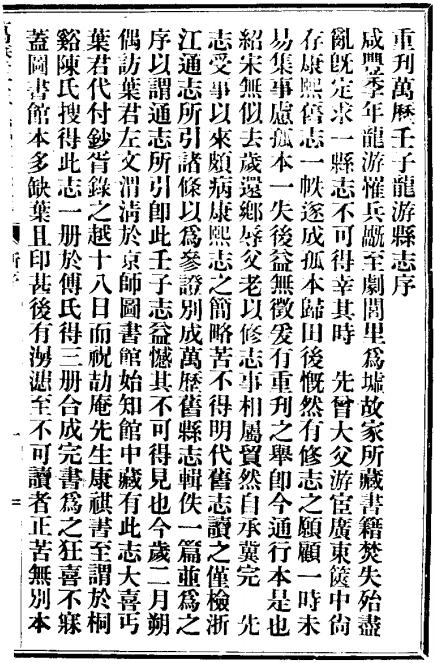 重刊萬歷壬子龍游縣志序
咸豐季年龍游罹兵燬至劇閭里爲墟故家所藏書籍焚失殆盡
亂旣定求一縣志不可得幸其時　先曾大父游宦廣東篋中尙
存康熙舊志一帙遂成孤本歸田後慨然有修志之願顧一時未
易集事慮孤本一失後益無徵爰有重刊之舉卽今通行本是也
紹宋無似去歲還鄉辱父老以修志事相屬貿然自承冀完　先
志受事以來頗病康熙志之簡略苦不得明代舊志讀之僅檢浙
江通志所引諸條以爲參證別成萬歷舊縣志輯佚一篇並爲之
序以謂通志所引卽此壬子志益憾其不可得見也今歲二月朔
偶訪葉君左文渭淸於京師圖書館始知館中藏有此志大喜丐
葉君代付鈔胥錄之越十八日而祝劼庵先生康祺書至謂於桐
谿陳氏搜得此志一册於傅氏得三册合成完書爲之狂喜不寐
蓋圖書館本多缺葉且印甚後有漫漶至不可讀者正苦無別本